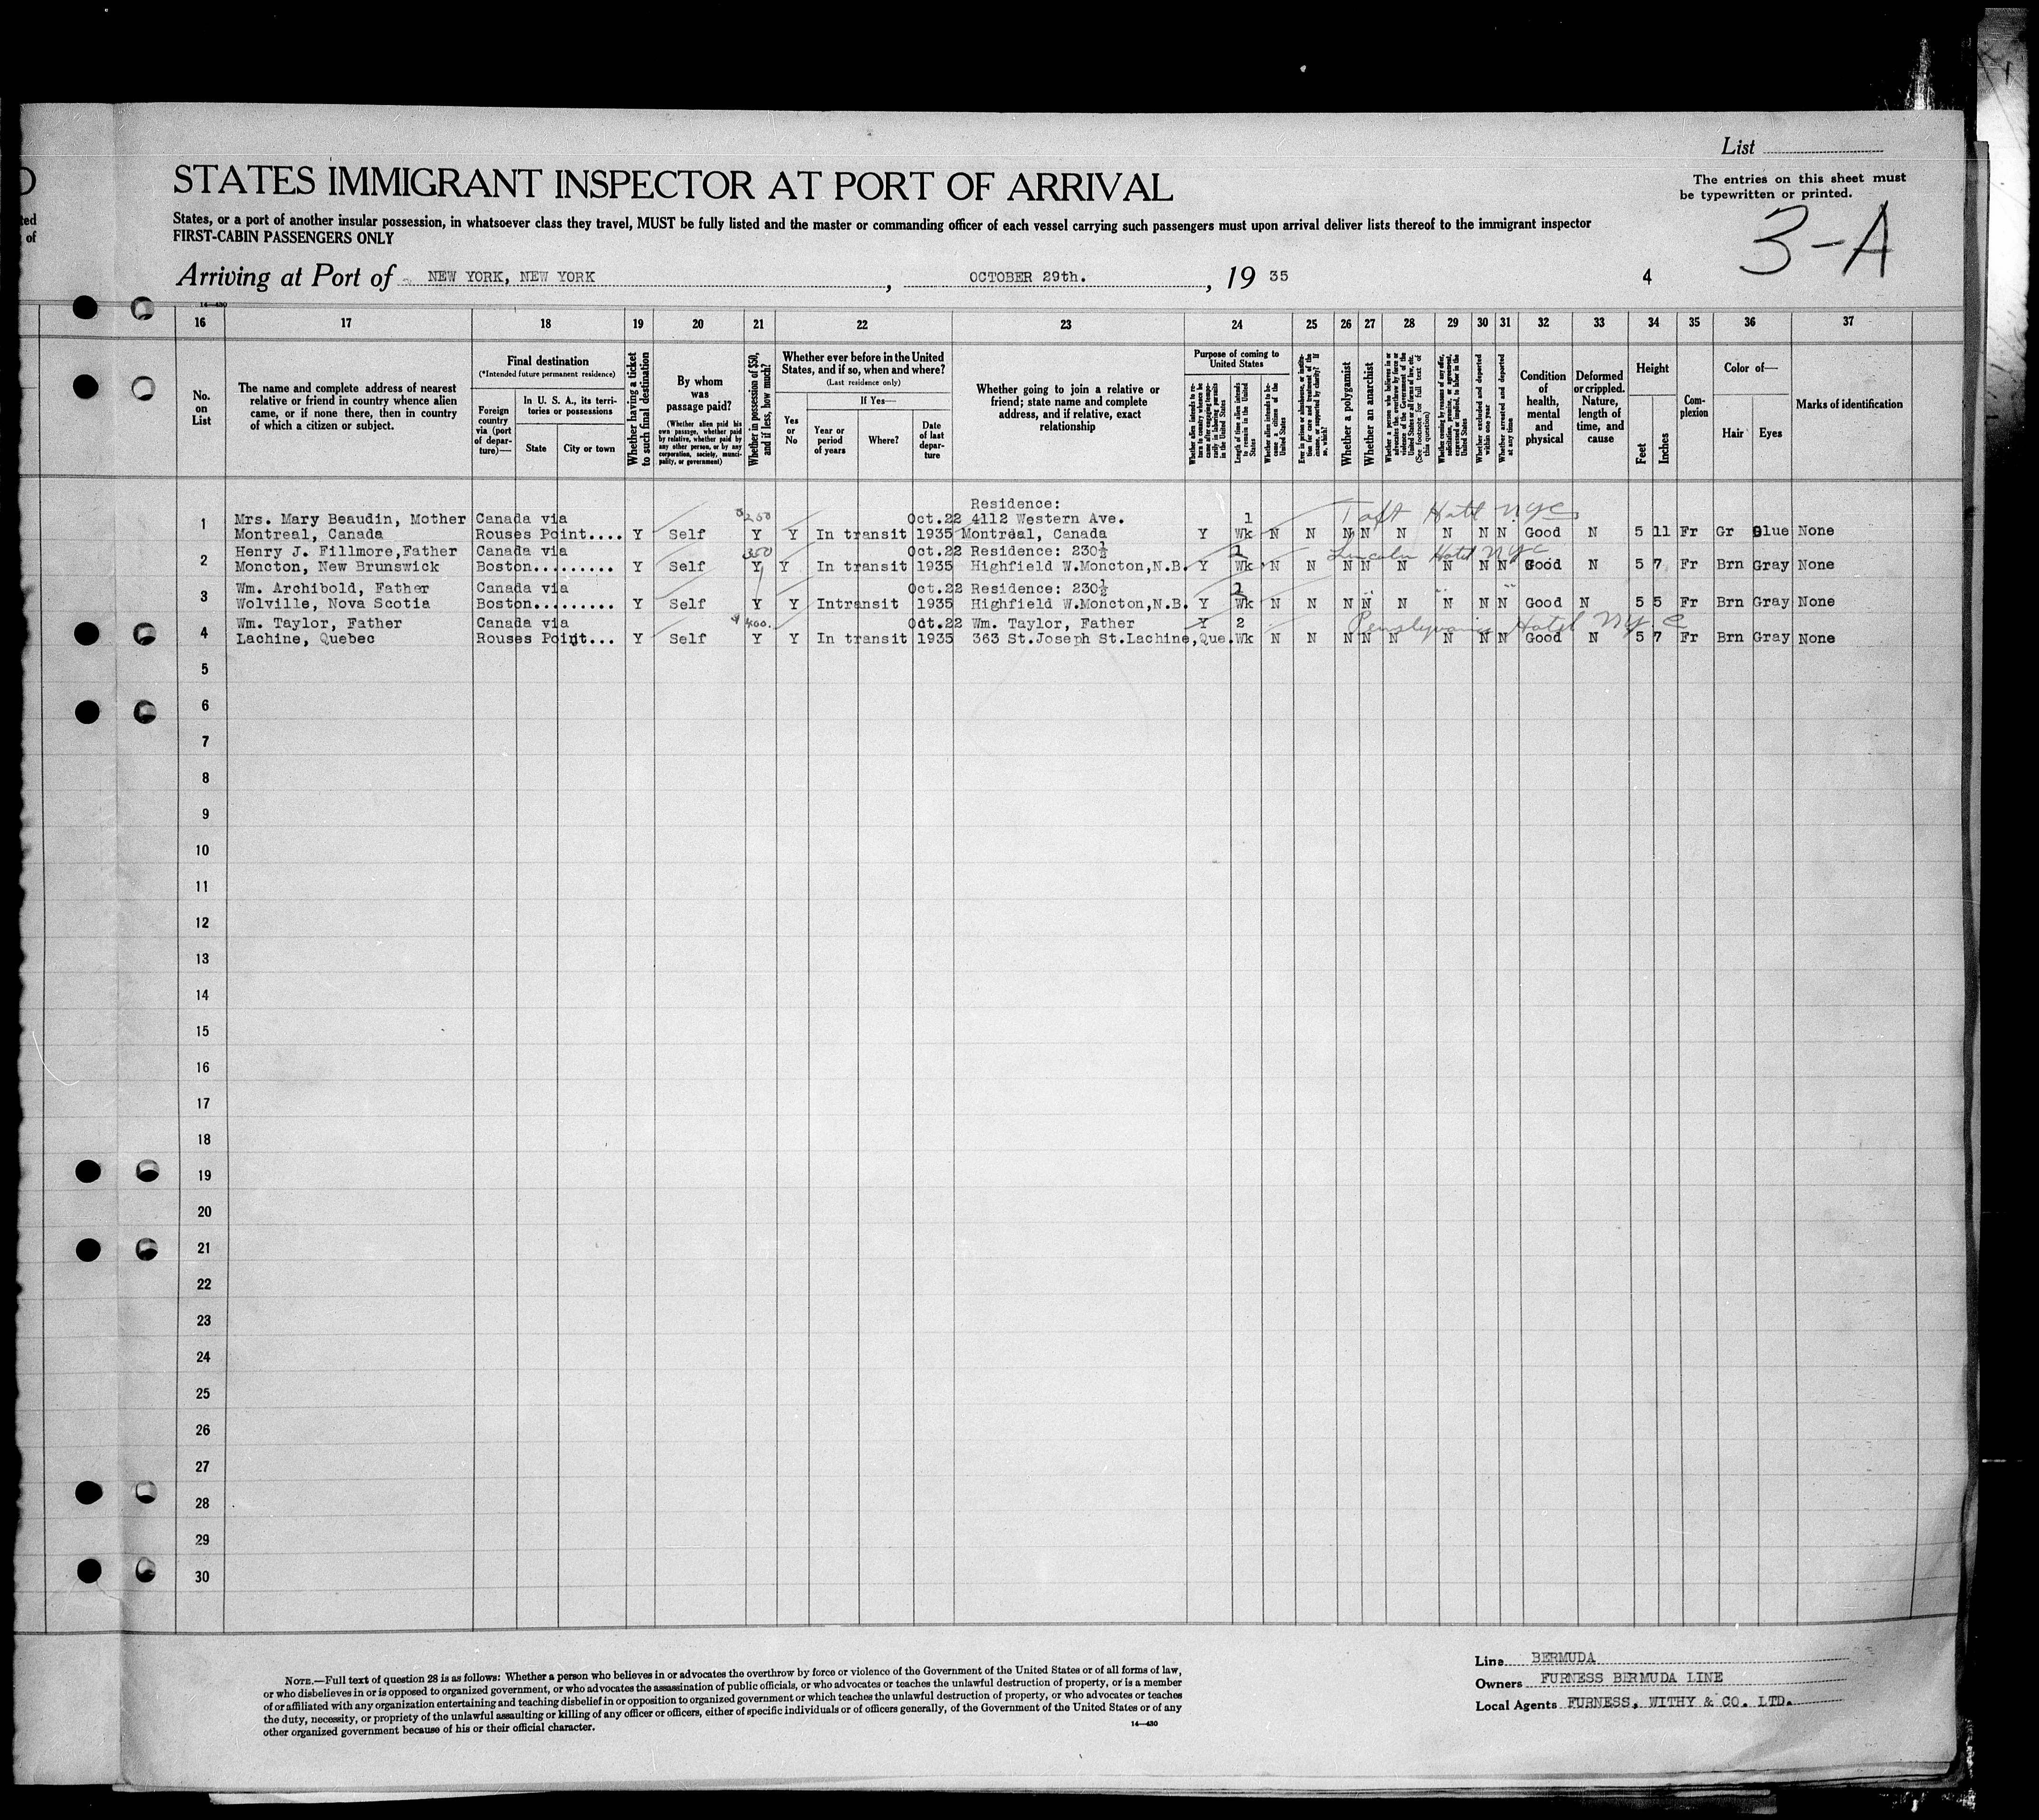 List
STATES IMMIGRANT INSPECTOR AT PORT OF ARRIVAL
The entries on this sheet must
be typewritten or printed.
ted
of
States, or a port of another insular possession, in whatsoever class they travel, MUST be fully listed and the master or commanding officer of each vessel carrying such passengers must upon arrival deliver lists thereof to the immigrant inspector
FIRST-CABIN PASSENGERS ONLY
3-A
Arriving at Port of NEW YORK, NEW YORK, OCTOBER 29th., 19 35
4
14—430
16 17 18 19 20 21 22 23 24 25 26 27 28 29 30 31 32 33 34 35 36 37
No. on List
The name and complete address of nearest
relative or friend in country whence alien
came, or if none there, then in country
of which a citizen or subject.
Final destination
(*Intended future permanent residence)
Foreign country via (port of departure)—
In U. S. A., its territories or possessions
State
City or town
Whether having a ticket to such final destination
By whom was passage paid?
(Whether alien paid his own passage, whether paid by relative, whether paid by any other person, or by any corporation, society, municipality, or government)
Whether in possession of $50, and if less, how much?
Whether ever before in the United
States, and if so, when and where?
(Last residence only)
Yes or No
If Yes—
Year or period of years
Where?
Date of last departure
Whether going to join a relative or
friend; state name and complete
address, and if relative, exact
relationship
Purpose of coming to
United States
Length of time alien intends to remain in the United States
Whether alien intends to become a citizen of the United States
Whether a polygamist
Whether an anarchist
(See footnote for full text of this question)
Whether excluded and deported within one year
Whether arrested and deported at any time
Condition of health, mental and physical
Deformed or crippled. Nature, length of time, and cause
Height
Feet
Inches
Complexion
Color of—
Hair
Eyes
Marks of identification
Residence:
1 Mrs. Mary Beaudin, Mother Canada via $250 Oct.22 4112 Western Ave. 1 Taft Hotel NYC
Montreal, Canada Rouses Point.... Y Self Y Y In transit 1935 Montreal, Canada Y Wk N N N N N N N N Good N 5 11 Fr Gr Blue None
2 Henry J. Fillmore,Father Canada via 350 Oct.22 Residence: 230½ 1 Lincoln Hotel NYC
Moncton, New Brunswick Boston......... Y Self Y Y In transit 1935 Highfield W.Moncton,N.B. Y Wk N N N N N N N N Good N 5 7 Fr Brn Gray None
3 Wm. Archibold, Father Canada via Oct.22 Residence: 230½ 1
Wolville, Nova Scotia Boston......... Y Self Y Y Intransit 1935 Highfield W.Moncton,N.B. Y Wk N N N N N N N N Good N 5 5 Fr Brn Gray None
4 Wm. Taylor, Father Canada via 400. Oct.22 Wm. Taylor, Father Y 2 Pennslyvania Hotel NYC
Lachine, Quebec Rouses Point... Y Self Y Y In transit 1935 363 St.Joseph St.Lachine,Que. Wk N N N N N N N N Good N 5 7 Fr Brn Gray None
5
6
7
8
9
10
11
12
13
14
15
16
17
18
19
20
21
22
23
24
25
26
27
28
29
30
NOTE.—Full text of question 28 is as follows: Whether a person who believes in or advocates the overthrow by force or violence of the Government of the United States or of all forms of law,
or who disbelieves in or is opposed to organized government, or who advocates the assassination of public officials, or who advocates or teaches the unlawful destruction of property, or is a member
of or affiliated with any organization entertaining and teaching disbelief in or opposition to organized government or which teaches the unlawful destruction of property, or who advocates or teaches
the duty, necessity, or propriety of the unlawful assaulting or killing of any officer or officers, either of specific individuals or of officers generally, of the Government of the United States or of any
other organized government because of his or their official character.
14—430
Line BERMUDA
Owners FURNESS BERMUDA LINE
Local Agents FURNESS, WITHY & CO. LTD.